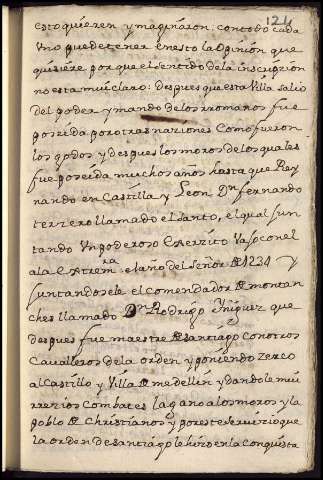 124
esto quieren ymaginaron; con todo cada
Uno puede tener en esto la Opinion que
quisiere, porque el sentido de la inscripzion
no esta mui claro: despues que esta Villa salio
del poder y mando de los rromanos fue
poseida por otras naziones Como fueron
los godos y despues los moros de los quales
fue poseida muchos años hasta que Rey
nando en Castilla y Leon Dn fernando
terzero llamado el santo, el qual jun
tando Un poderoso Exerzito Vaso con el
a la Extremra el año del Señor de 1234 Y
juntandosele el comendador de montan
ches llamado Dn Rodrigo Yñiguez que
despues fue maestre de santiago con otros
Cavalleros de la orden y poniendo zerco
al Castillo y Villa de medellin y dandole mui
rrezios combates la gano a los moros y la
poblo de Christianos y por este servizio que
la orden de santiago le hizo en la conquista